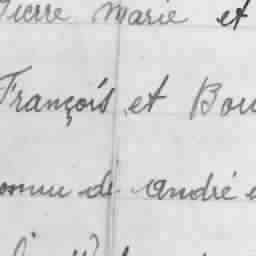 Pierre Marie et
François et Bou
onnu de André